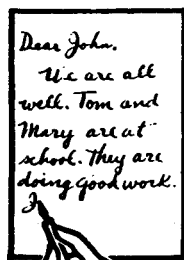 Dear John.
We are all
well. Tom and
Mary are at
school. They are
doing good work.
I